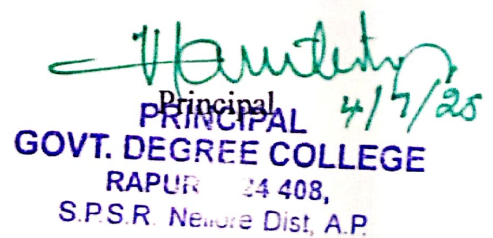 Principal
4/7/25
PRINCIPAL
GOVT. DEGREE COLLEGE
RAPUR 24 408,
S.P.S.R. Nellore Dist, A.P.